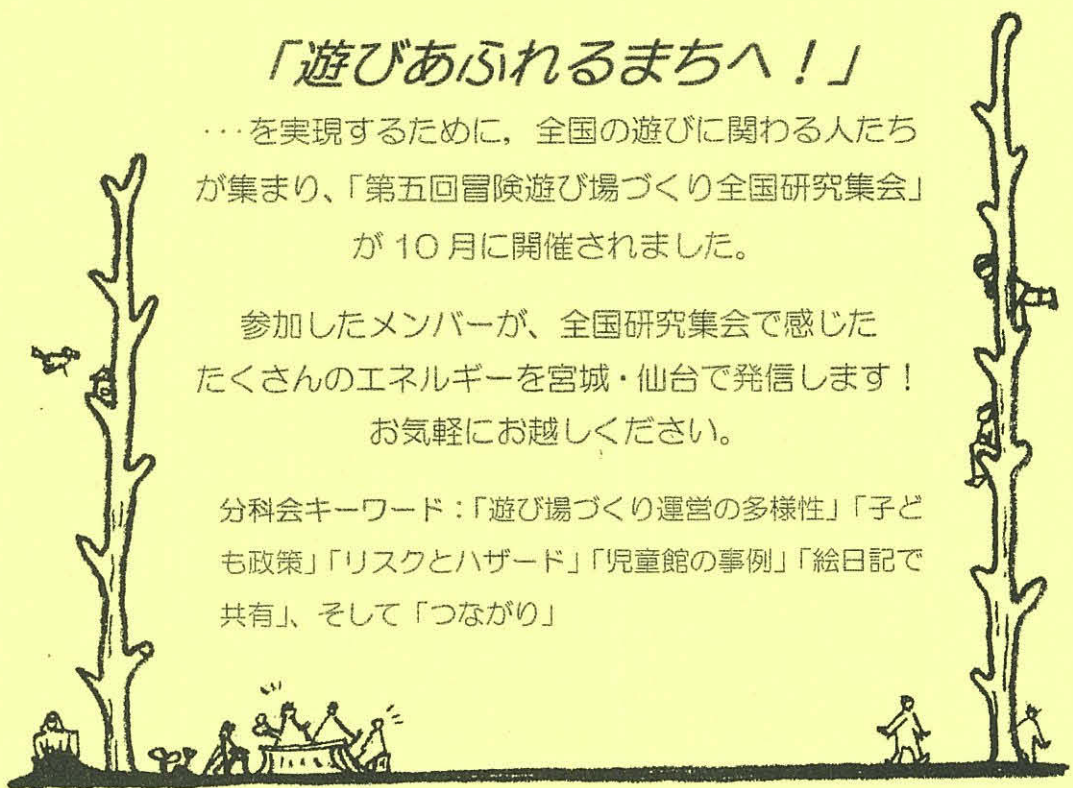 「遊びあふれるまちへ！」
…を実現するために，全国の遊びに関わる人たち
が集まり、「第五回冒険遊び場づくり全国研究集会」
が 10 月に開催されました。
参加したメンバーが、全国研究集会で感じた
たくさんのエネルギーを宮城・仙台で発信します！
お気軽にお越しください。
分科会キーワード：「遊び場づくり運営の多様性」「子ど
も政策」「リスクとハザード」「児童館の事例」「絵日記で
共有」、そして「つながり」